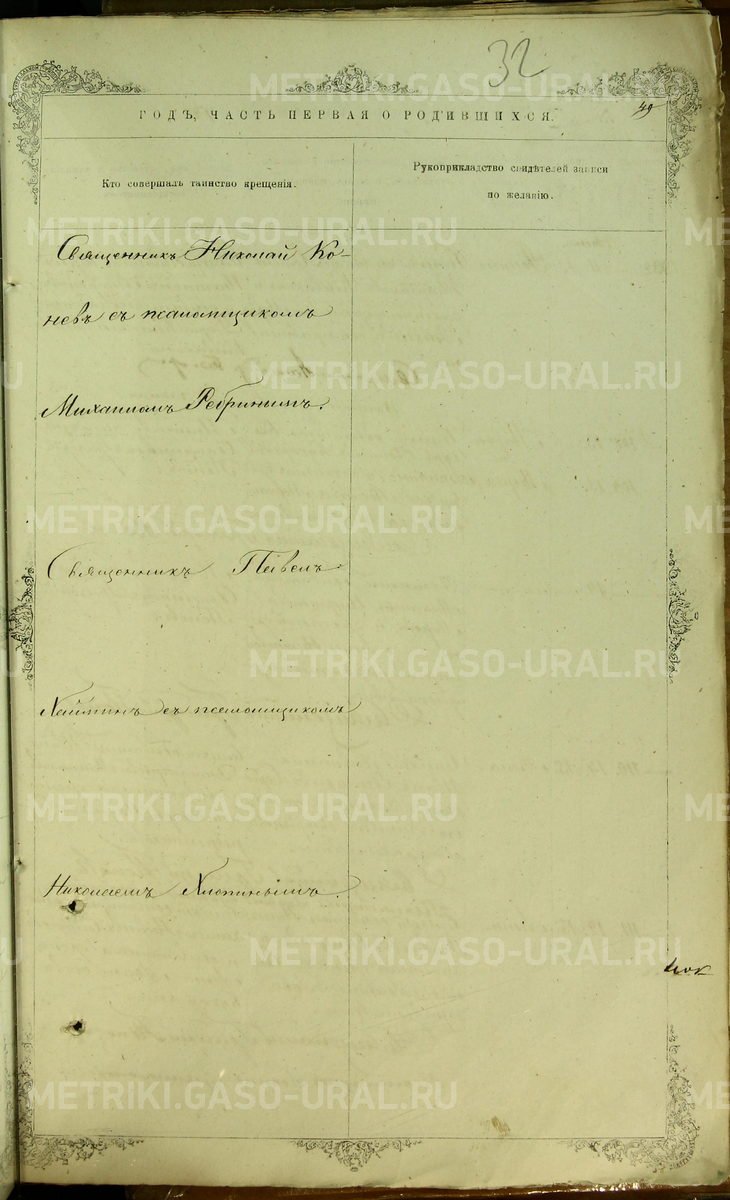 32
49
ГОДЪ, ЧАСТЬ ПЕРВАЯ О РОДИВШИХСЯ.
Кто совершалъ таинство крещенія.
Рукоприкладство свидѣтелей записи
по желанію.
Священникъ Николай Ко-
невъ съ псаломщикомъ
Михаиломъ Ребринымъ.
Священникъ Павелъ
съ псаломщикомъ
Николаемъ Хлопинымъ.
METRIKI.GASO-URAL.RU
METRIKI.GASO-URAL.RU
METRIKI.GASO-URAL.RU
METRIKI.GASO-URAL.RU
METRIKI.GASO-URAL.RU
METRIKI.GASO-URAL.RU
METRIKI.GASO-URAL.RU
METRIKI.GASO-URAL.RU